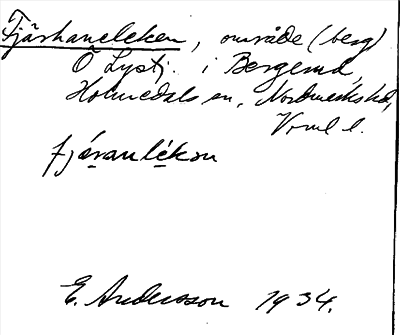 Fjärhaneleken, område (berg)
Ö Lystj. i Bergerud,
Holmedals sn, Nordmarks hd,
Vrml l.
fjǽranlékan
E. Andersson 1934.